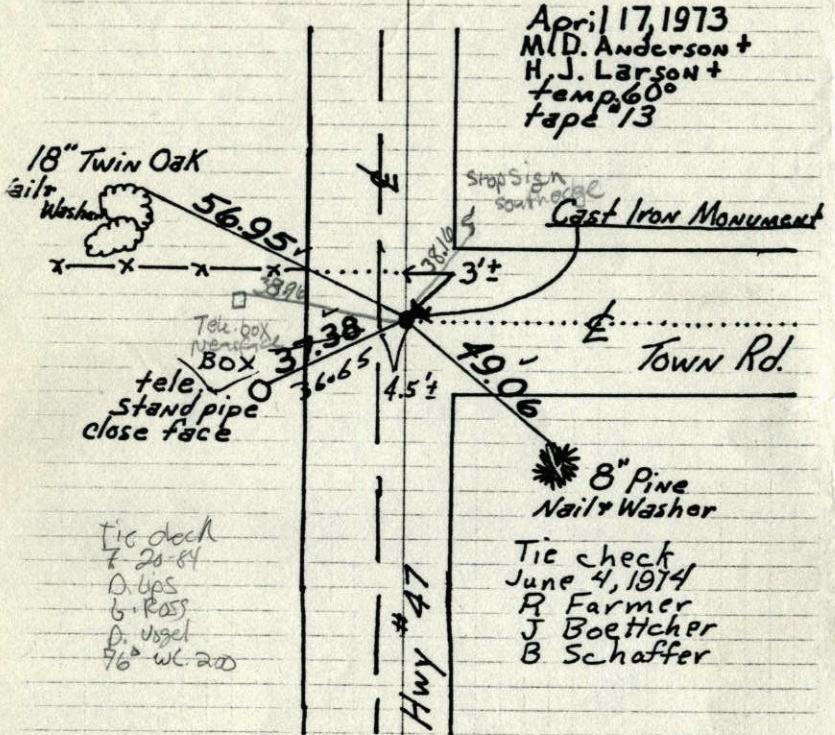 April 17, 1973
M.D. Anderson +
H.J. Larson +
temp. 60°
tape #13
18" Twin Oak
Nail &
Washer
56.95'
℄
Stop Sign
South edge
38.16
Cast Iron Monument
x x x x
3'±
38.96
Tele. box
℄
Town Rd.
Box
37.38
36.65
4.5'±
49.06'
tele.
Stand pipe
close face
8" Pine
Nail & Washer
Tie check
7-20-84
D. Lips
G. Ross
D. Vogel
76° WC. 200
Tie check
June 4, 1974
R Farmer
J Boettcher
B Schaffer
Hwy #47